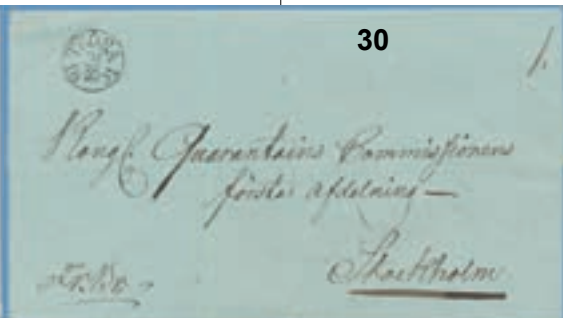 30
1.
Kongl. Quarantains Commissionens
första Afdelning —
Stockholm